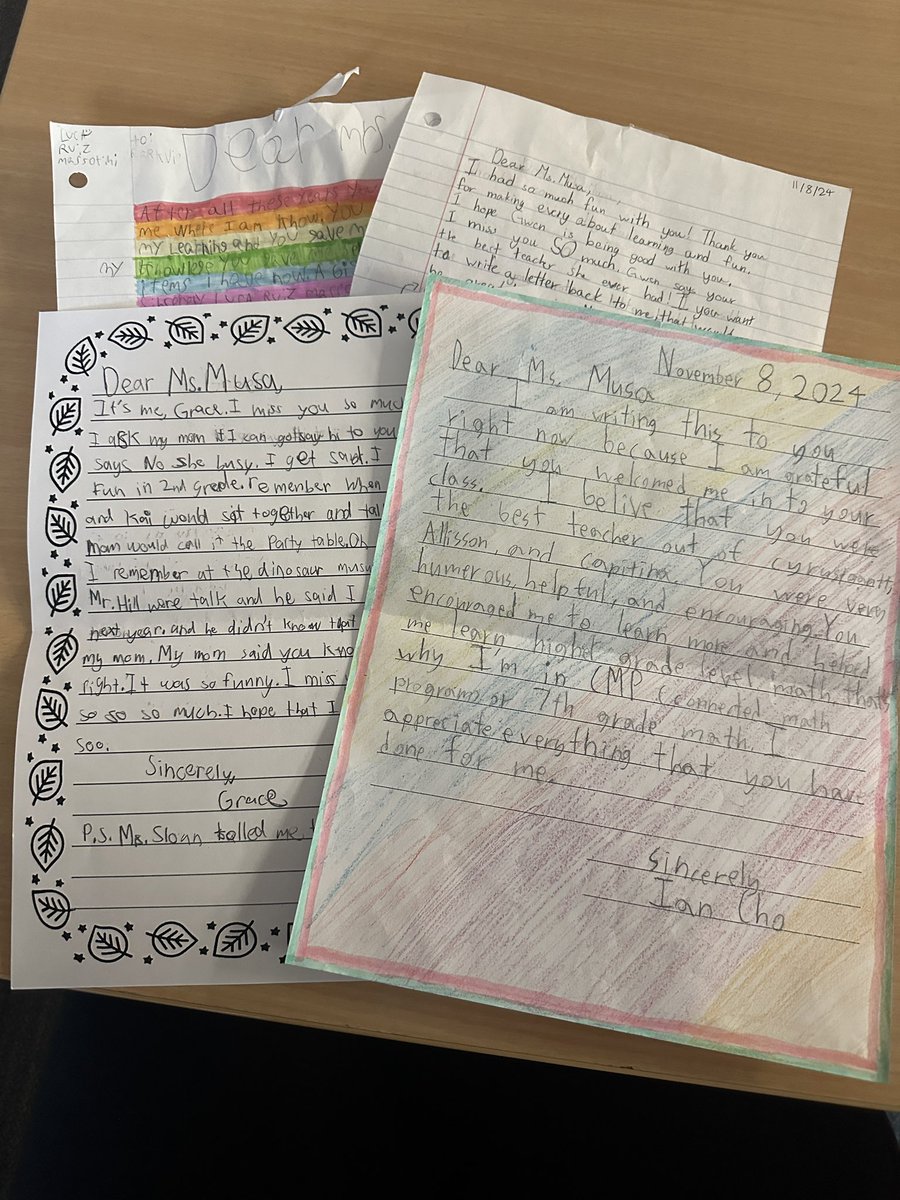 Luca
Ruiz
to:
Dear Mrs.
After all these years you
me where I am know. You
my learning and you gave m
my knowlege you gave me
items I have now. A Gi
11/8/24
Dear Ms. Musa,
I had so much fun with you! Thank you
for making every about learning and fun.
I hope Gwen is being good with you.
I miss you SO much. Gwen say your
the best teacher she ever had! If you want
to write a letter back to me that would
Dear Ms. Musa,
It's me, Grace. I miss you so much
I ask my mom if I can go say hi to you
says No she busy. I get sad. I
Fun in 2nd grade. remember when
and Kai would sit together and tal
mom would call it the Party table. Oh
I remember at the dinosaur musu
Mr. Hill were talk and he said I
next year. and he didn't know that
my mom. My mom said you kno
right. It was so funny. I miss
so so so much. I hope that I
soo.
Sincerely,
Grace
P.S. Ms. Sloan tolled me
November 8, 2024
Dear Ms. Musa
I am writing this to you
right now because I am grateful
that you welcomed me in to your
class. I belive that you were
the best teacher out of
Allisson, and Capitina. You were very
humerous, helpful, and encouraging. You
encouraged me to learn more and helped
me learn higher grade level math, thats
why I'm in CMP (connected math
program) or 7th grade math. I
appreciate everything that you have
done for me.
Sincerely
Ian Cho